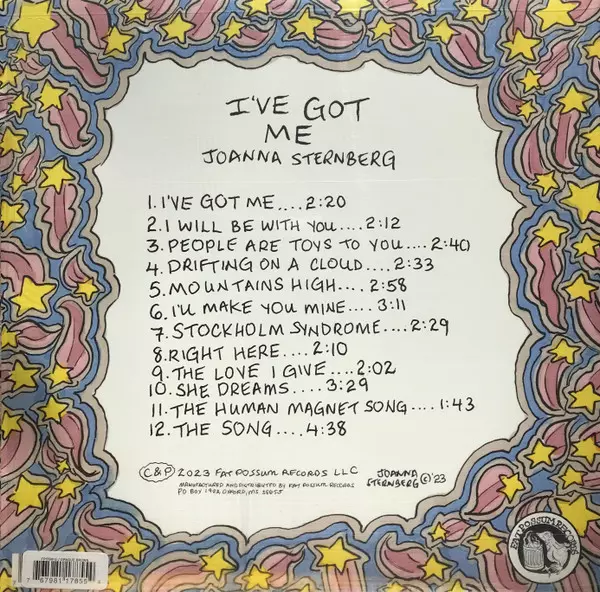 I'VE GOT
ME
JOANNA STERNBERG
1. I'VE GOT ME....2:20
2. I WILL BE WITH YOU....2:12
3. PEOPLE ARE TOYS TO YOU....2:40
4. DRIFTING ON A CLOUD....2:33
5. MOUNTAINS HIGH....2:58
6. I'LL MAKE YOU MINE....3:11
7. STOCKHOLM SYNDROME....2:29
8. RIGHT HERE....2:10
9. THE LOVE I GIVE....2:02
10. SHE DREAMS....3:29
11. THE HUMAN MAGNET SONG....1:43
12. THE SONG....4:38
C&P 2023 FAT POSSUM RECORDS LLC
MANUFACTURED AND DISTRIBUTED BY FAT POSSUM RECORDS
PO BOX 1923 OXFORD, MS. 38655
JOANNA
STERNBERG ©'23
FAT POSSUM RECORDS
7 67981 17855